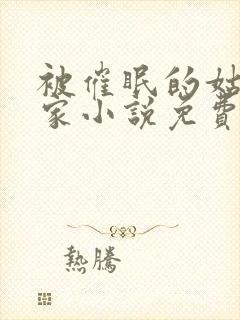 被催眠的姑
家小説免費
熱騰